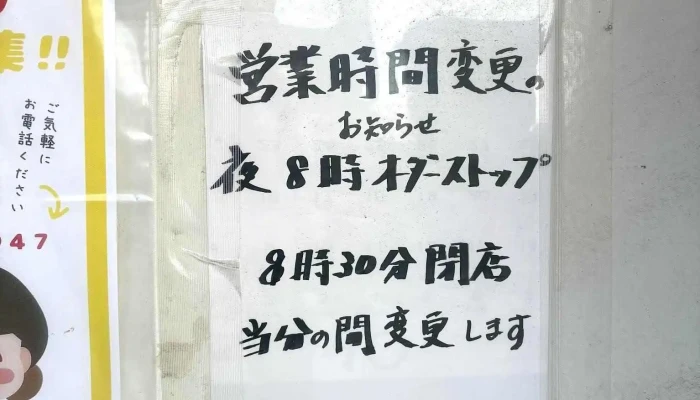 営業時間変更の
お知らせ
夜8時オーダーストップ
8時30分閉店
当分の間変更します
集!!
ご気軽に
お電話ください
047